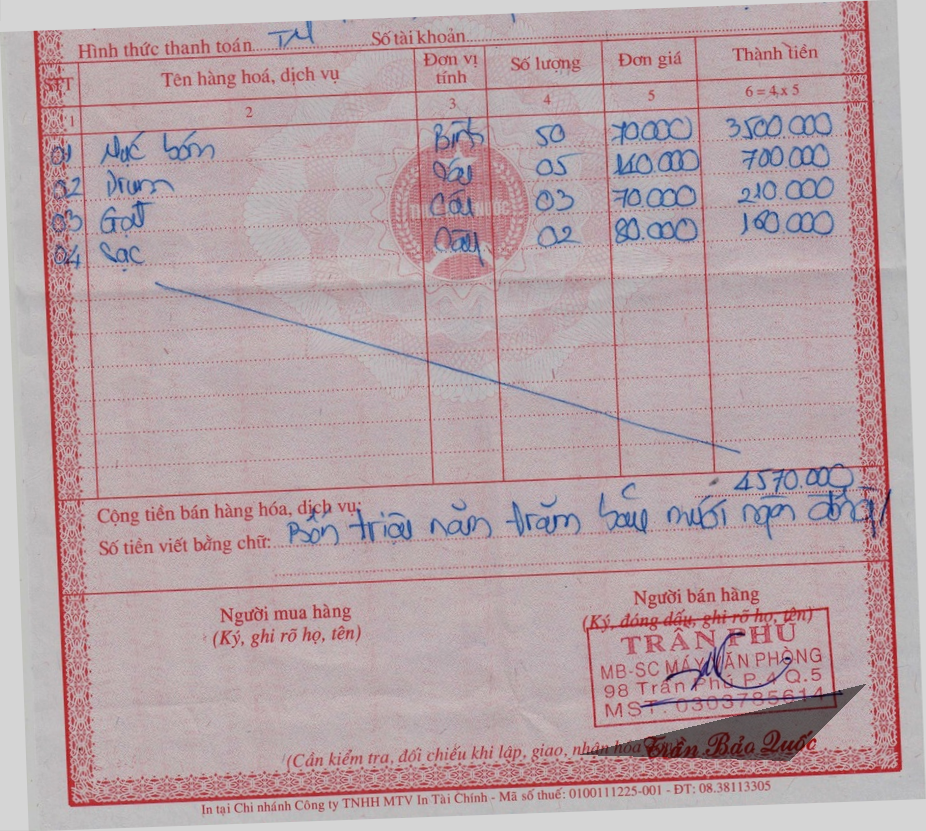 Hình thức thanh toán TM Số tài khoản
STT Tên hàng hoá, dịch vụ Đơn vị tính Số lượng Đơn giá Thành tiền
1 2 3 4 5 6 = 4 x 5
01 Mực bơm Bình 50 70.000 3500.000
02 Drum Cái 05 140.000 700.000
03 Gạt Cái 03 70.000 210.000
04 Sạc Cây 02 80.000 160.000
4570.000
Cộng tiền bán hàng hóa, dịch vụ:
Số tiền viết bằng chữ: Bốn triệu năm trăm bảy mươi ngàn đồng
Người mua hàng
(Ký, ghi rõ họ, tên)
Người bán hàng
(Ký, đóng dấu, ghi rõ họ, tên)
TRÂN PHÚ
MB-SC MÁY VĂN PHÒNG
98 Trần Phú P.4 Q.5
MST: 0303785614
(Cần kiểm tra, đối chiếu khi lập, giao, nhận hóa
Trần Bảo Quốc
In tại Chi nhánh Công ty TNHH MTV In Tài Chính - Mã số thuế: 0100111225-001 - ĐT: 08.38113305